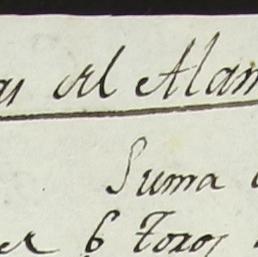 del Alam
Suma
6 Toros